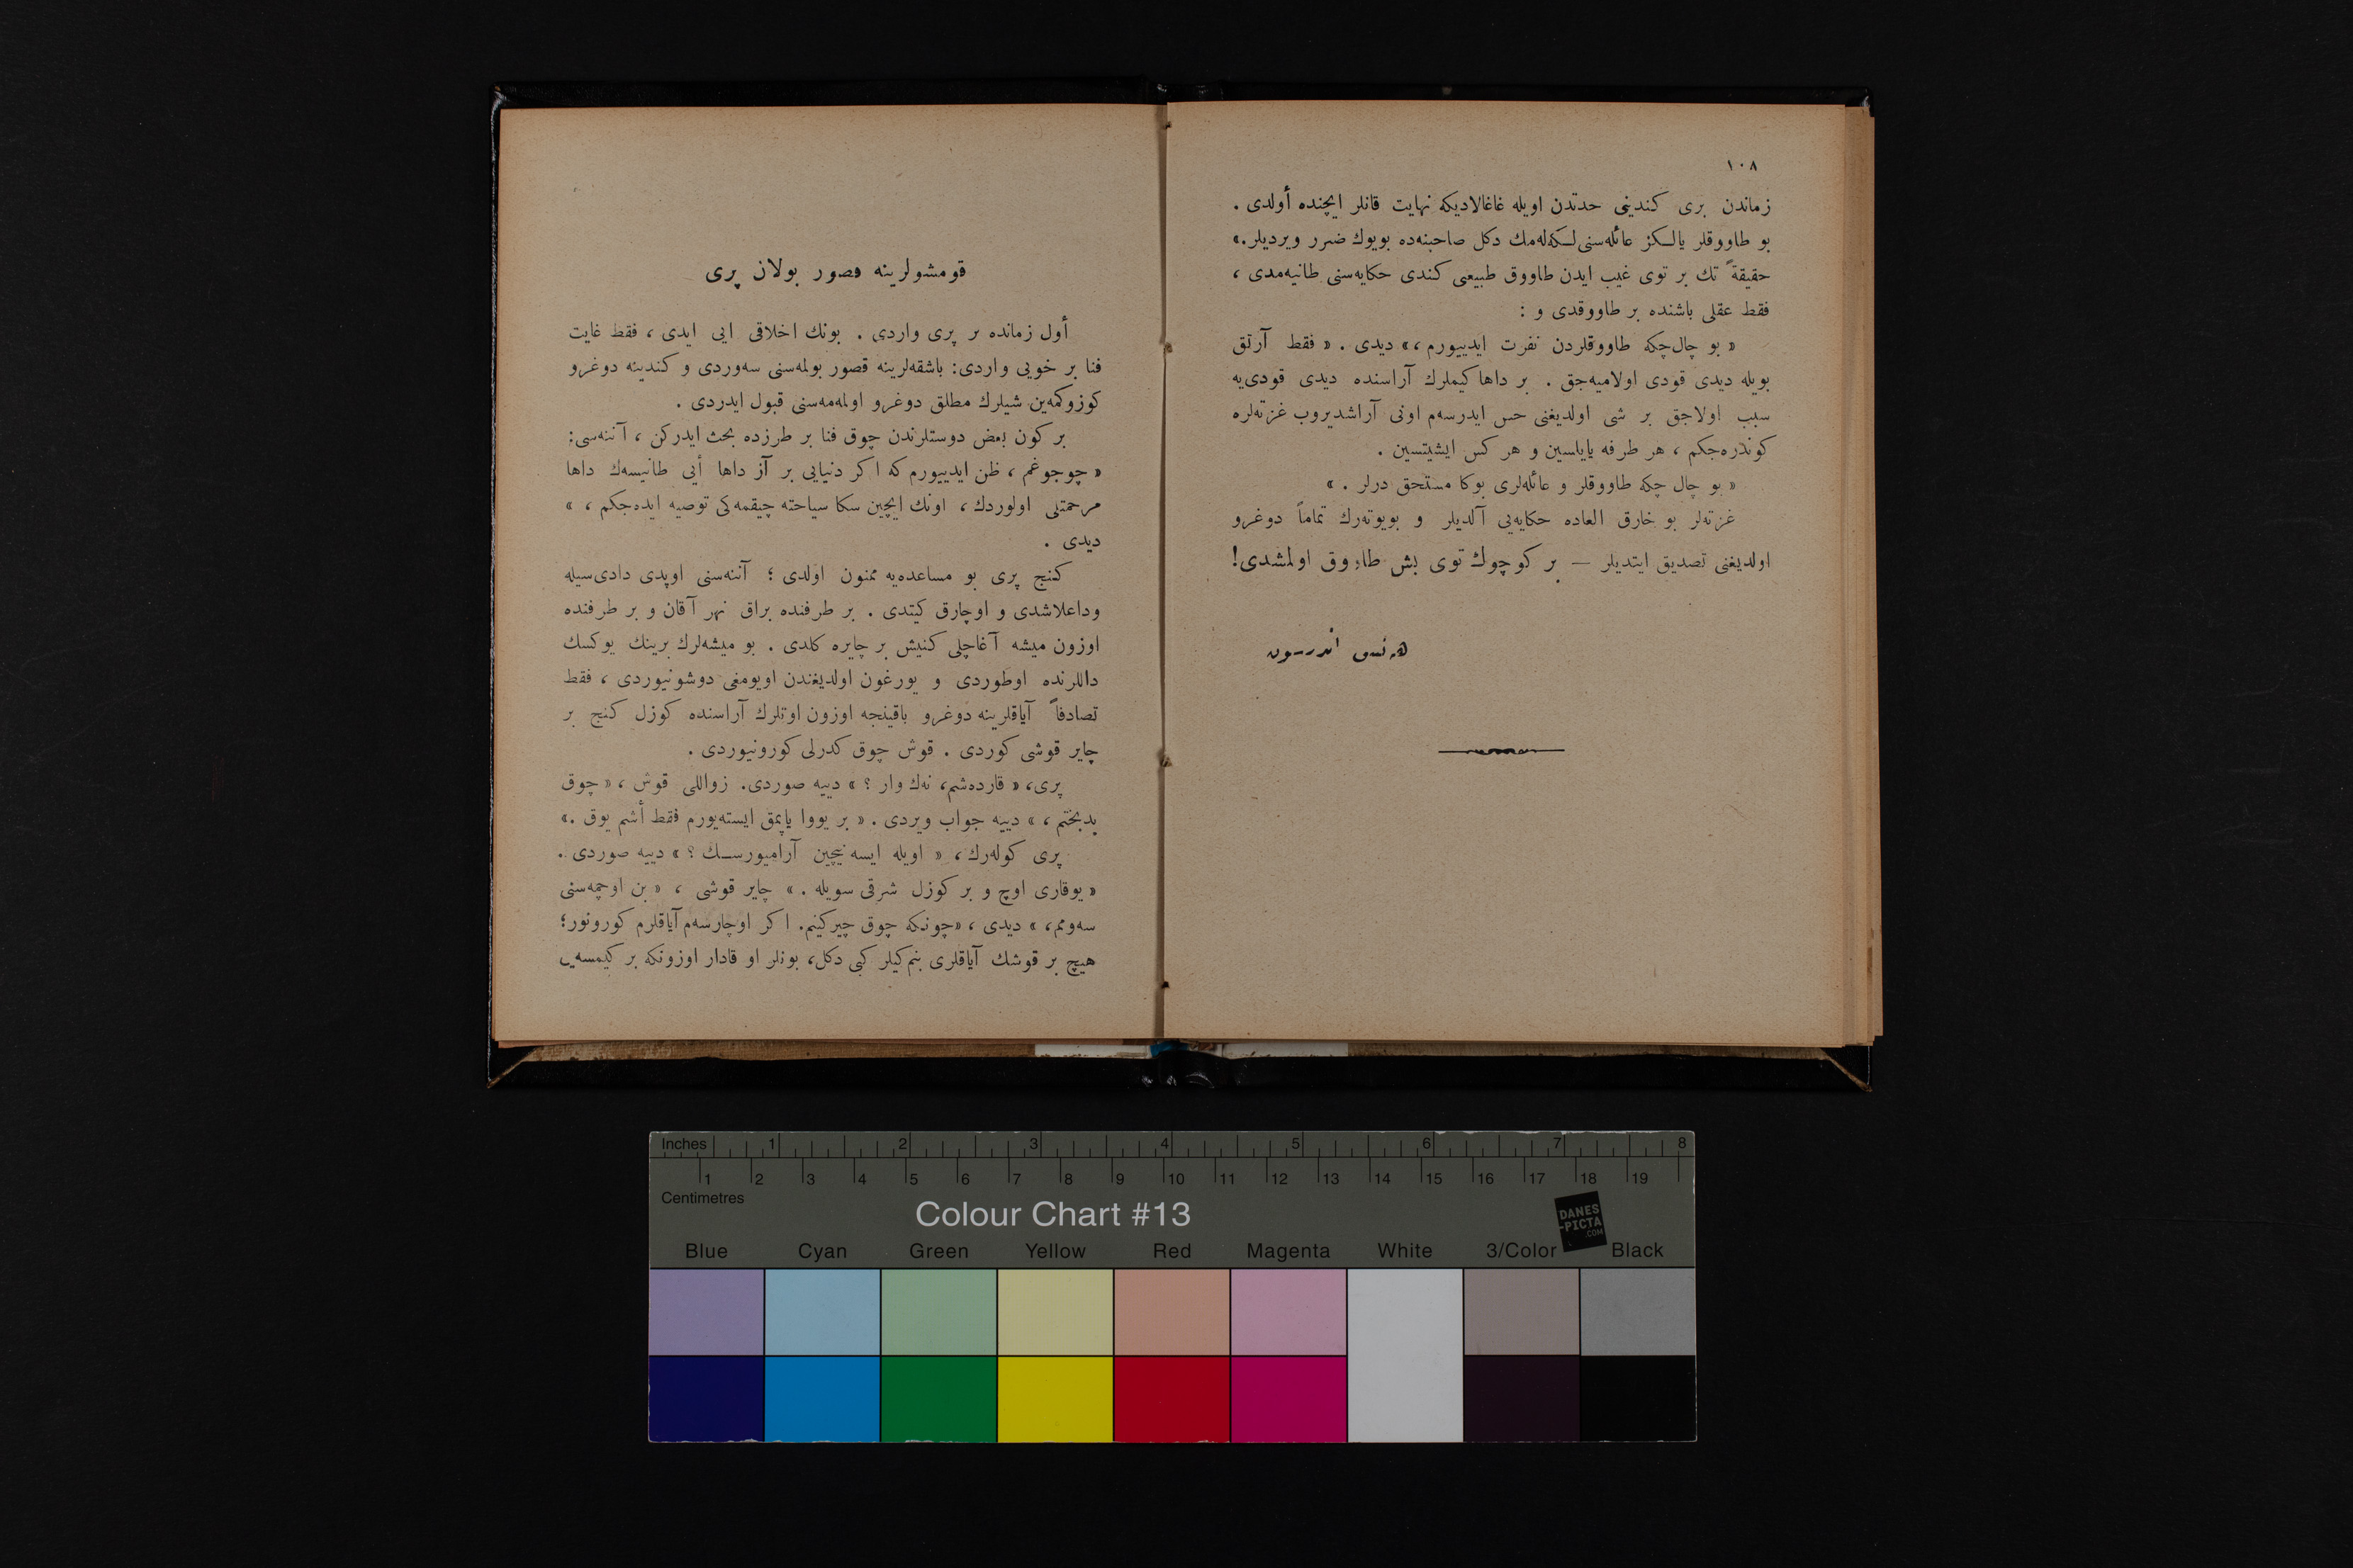 ١٠٨
زماندن بری كندینی حدتدن اویله غاغالادیكه نهایت قانلر ایچنده أولدی .
بو طاووقلر یالـكز عائله‌سنی لـكه‌له‌مك دكل صاحبنه‌ده بویوك ضرر ویردیلر.»
حقیقةً تك بر توی غیب ایدن طاووق طبیعی كندی حكایه‌سنی طانیه‌مدی ،
فقط عقلی باشنده بر طاووقدی و :
« بو چال‌چكه طاووقلردن نفرت ایدییورم ،» دیدی . « فقط آرتق
بویله دیدی قودی اولامیه‌جق . بر داها كیملرك آراسنده دیدی قودی‌یه
سبب اولاجق بر شی اولدیغنی حس ایدرسه‌م اونی آراشدیروب غزته‌لره
كوندره‌جكم ، هر طرفه یایلسین و هر كس ایشیتسین .
« بو چال چكه طاووقلر و عائله‌لری بوكا مستحق درلر . »
غزته‌لر بو خارق العاده حكایه‌یی آلدیلر و بویوته‌رك تماماً دوغرو
اولدیغنی تصدیق ایتدیلر — بر كوچوك توی بش طاووق اولمشدی!
هه‌نس اندرسون
قومشولرینه قصور بولان پری
أول زمانده بر پری واردی . بونك اخلاقی ایی ایدی ، فقط غایت
فنا بر خویی واردی: باشقه‌لرینه قصور بولمه‌سنی سه‌وردی و كندینه دوغرو
كوزوكمه‌ین شیلرك مطلق دوغرو اولمه‌مه‌سنی قبول ایدردی .
بر كون بعض دوستلرندن چوق فنا بر طرزده بحث ایدركن ، آننه‌سی:
« چوجوغم ، ظن ایدییورم كه اكر دنیایی بر آز داها أیی طانیسه‌ك داها
مرحمتلی اولوردك ، اونك ایچین سكا سیاحته چیقمه‌كی توصیه ایده‌جكم ، »
دیدی .
كنج پری بو مساعده‌یه ممنون اولدی ؛ آننه‌سنی اوپدی دادی‌سیله
وداعلاشدی و اوچارق كیتدی . بر طرفنده براق نهر آقان و بر طرفنده
اوزون میشه آغاچلی كنیش بر چایره كلدی . بو میشه‌لرك برینك یوكسك
داللرنده اوطوردی و یورغون اولدیغندن اویومغی دوشونیوردی ، فقط
تصادفاً آیاقلرینه دوغرو باقینجه اوزون اوتلرك آراسنده كوزل كنج بر
چایر قوشی كوردی . قوش چوق كدرلی كورونیوردی .
پری، « قارده‌شم، نه‌ك وار ؟ » دییه صوردی. زواللی قوش ، « چوق
بدبختم ، » دییه جواب ویردی . « بر یووا یاپمق ایسته‌یورم فقط أشم یوق .»
پری كوله‌رك ، « اویله ایسه نیچین آرامیورسـك ؟ » دییه صوردی .
« یوقاری اوچ و بر كوزل شرقی سویله . » چایر قوشی ، « بن اوچمه‌سنی
سه‌ومم، » دیدی ، «چونكه چوق چیركینم. اكر اوچارسه‌م آیاقلرم كورونور؛
هیچ بر قوشك آیاقلری بنم‌كیلر كبی دكل، بونلر او قادار اوزونكه بر كیمسه‌یی
Inches 1 2 3 4 5 6 7 8
1 2 3 4 5 6 7 8 9 10 11 12 13 14 15 16 17 18 19
Centimetres
Colour Chart #13
DANES
-PICTA
.COM
Blue Cyan Green Yellow Red Magenta White 3/Color Black